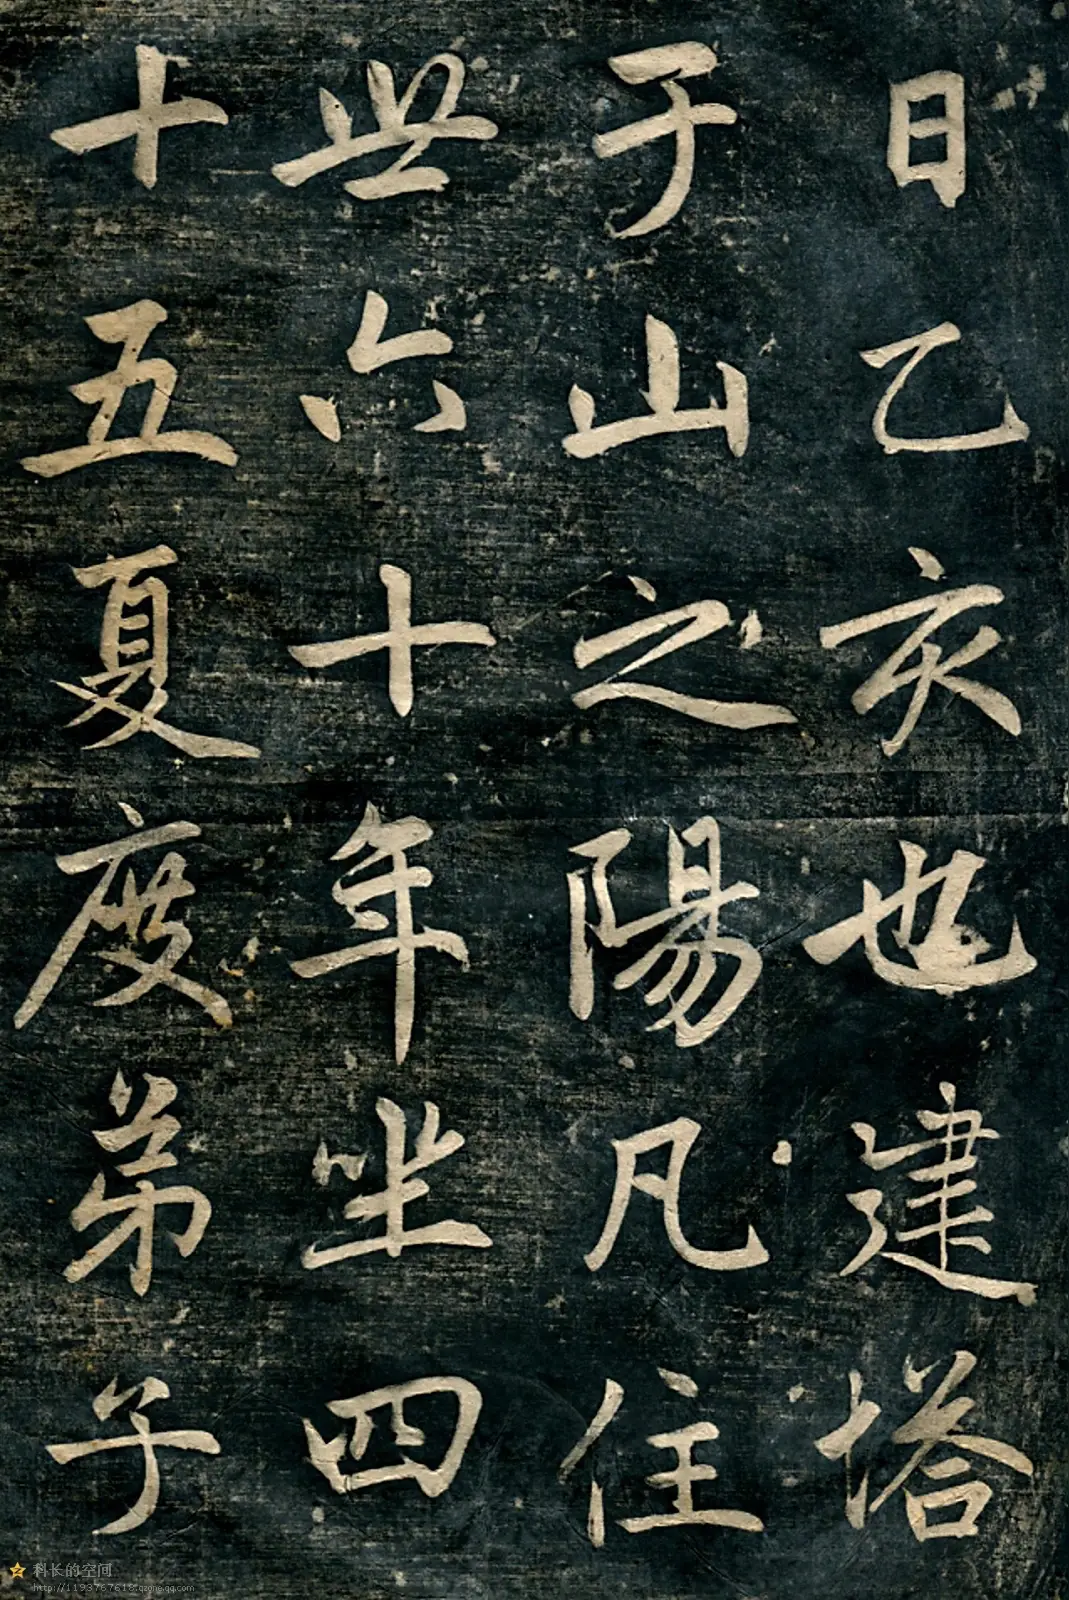 日乙亥也建塔
于山之陽凡住
世六十年坐四
十五夏度弟子
科长的空间
http://1193767618.qzone.qq.com